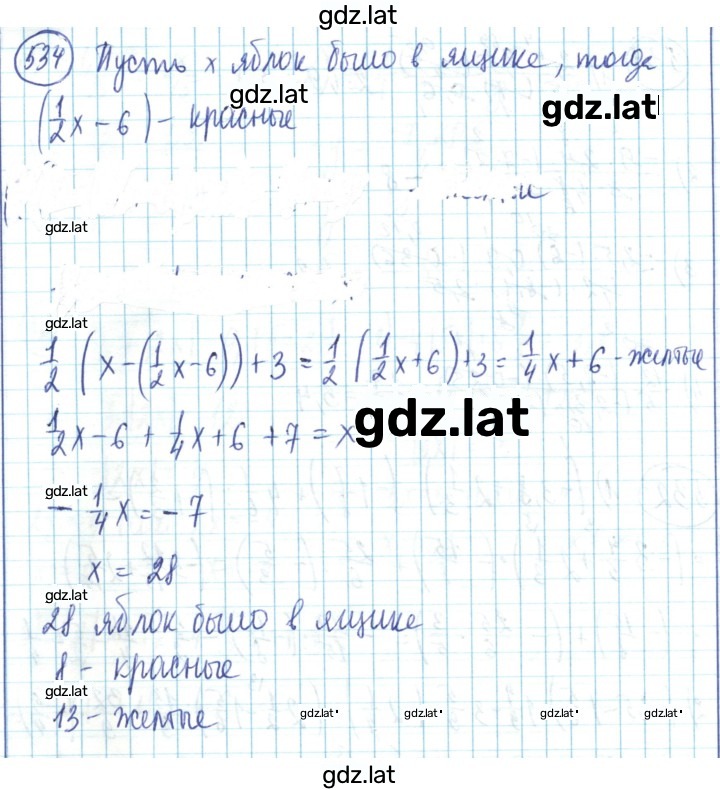 gdz.lat
534 Пусть x яблок было в ящике, тогда
gdz.lat
gdz.lat
(1/2x - 6) - красные
gdz.lat
gdz.lat
1/2 (x - (1/2x - 6)) + 3 = 1/2 (1/2x + 6) + 3 = 1/4 x + 6 - желтые
1/2x - 6 + 1/4x + 6 + 7 = x
gdz.lat
gdz.lat
- 1/4x = - 7
x = 28
gdz.lat
28 яблок было в ящике
8 - красные
gdz.lat
13 - желтые
gdz.lat gdz.lat gdz.lat gdz.lat
gdz.lat